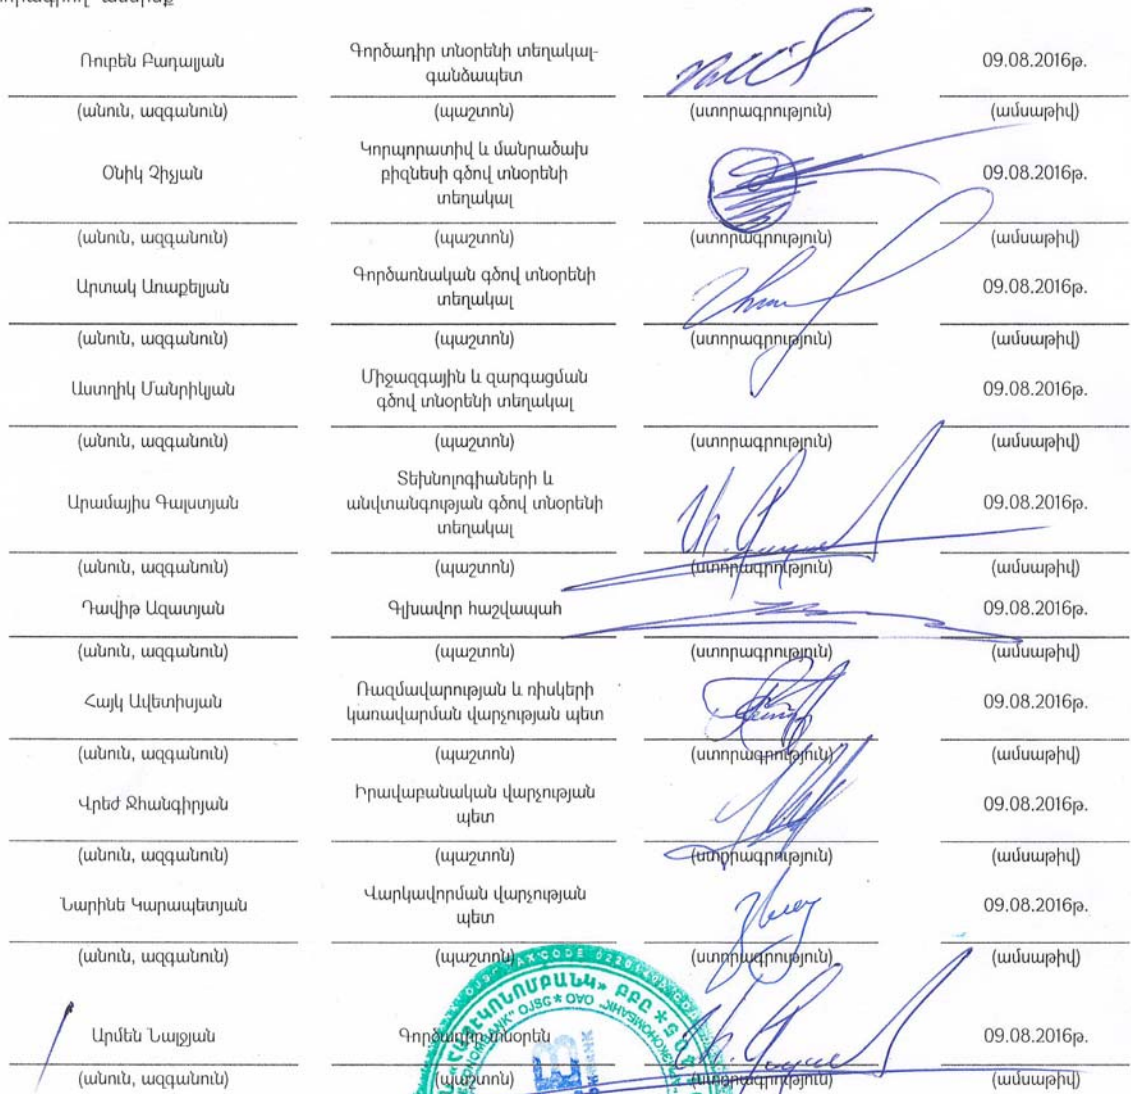 Ռուբեն Բադալյան
Գործադիր տնօրենի տեղակալ-
գանձապետ
09.08.2016թ.
(անուն, ազգանուն) (պաշտոն) (ստորագրություն) (ամսաթիվ)
Օնիկ Չիչյան
Կորպորատիվ և մանրածախ
բիզնեսի գծով տնօրենի
տեղակալ
09.08.2016թ.
(անուն, ազգանուն) (պաշտոն) (ստորագրություն) (ամսաթիվ)
Արտակ Առաքելյան
Գործառնական գծով տնօրենի
տեղակալ
09.08.2016թ.
(անուն, ազգանուն) (պաշտոն) (ստորագրություն) (ամսաթիվ)
Աստղիկ Մանրիկյան
Միջազգային և զարգացման
գծով տնօրենի տեղակալ
09.08.2016թ.
(անուն, ազգանուն) (պաշտոն) (ստորագրություն) (ամսաթիվ)
Արամայիս Գալստյան
Տեխնոլոգիաների և
անվտանգության գծով տնօրենի
տեղակալ
09.08.2016թ.
(անուն, ազգանուն) (պաշտոն) (ստորագրություն) (ամսաթիվ)
Դավիթ Ազատյան Գլխավոր հաշվապահ 09.08.2016թ.
(անուն, ազգանուն) (պաշտոն) (ստորագրություն) (ամսաթիվ)
Հայկ Ավետիսյան
Ռազմավարության և ռիսկերի
կառավարման վարչության պետ
09.08.2016թ.
(անուն, ազգանուն) (պաշտոն) (ստորագրություն) (ամսաթիվ)
Վրեժ Ջհանգիրյան
Իրավաբանական վարչության
պետ
09.08.2016թ.
(անուն, ազգանուն) (պաշտոն) (ստորագրություն) (ամսաթիվ)
Նարինե Կարապետյան
Վարկավորման վարչության
պետ
09.08.2016թ.
(անուն, ազգանուն) (պաշտոն) (ստորագրություն) (ամսաթիվ)
Արմեն Նալջյան Գործադիր տնօրեն 09.08.2016թ.
(անուն, ազգանուն) (պաշտոն) (ստորագրություն) (ամսաթիվ)